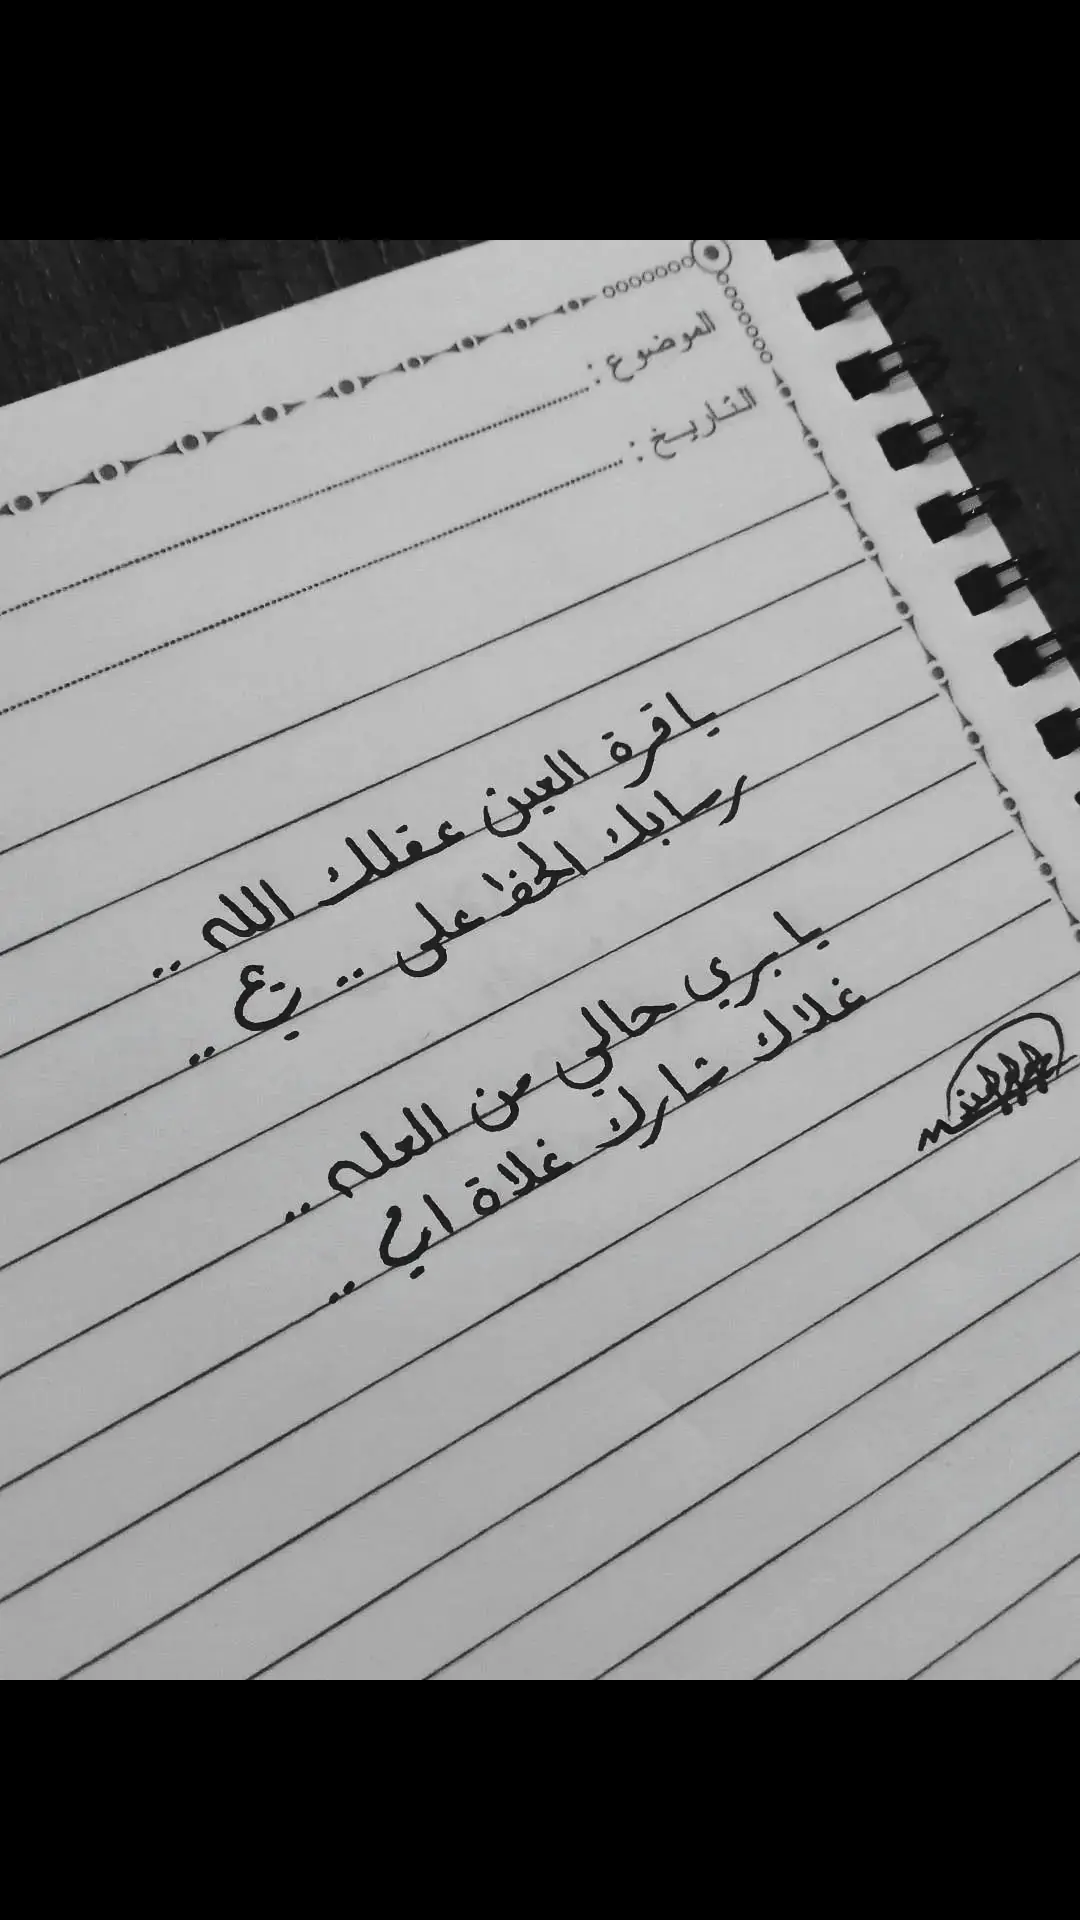 الموضوع :
التاريخ :
ياقرة العين عقلك الله ..
رسابك الحفا على ..
يا بري حالي من العله ..
غلاك شارك غلاة